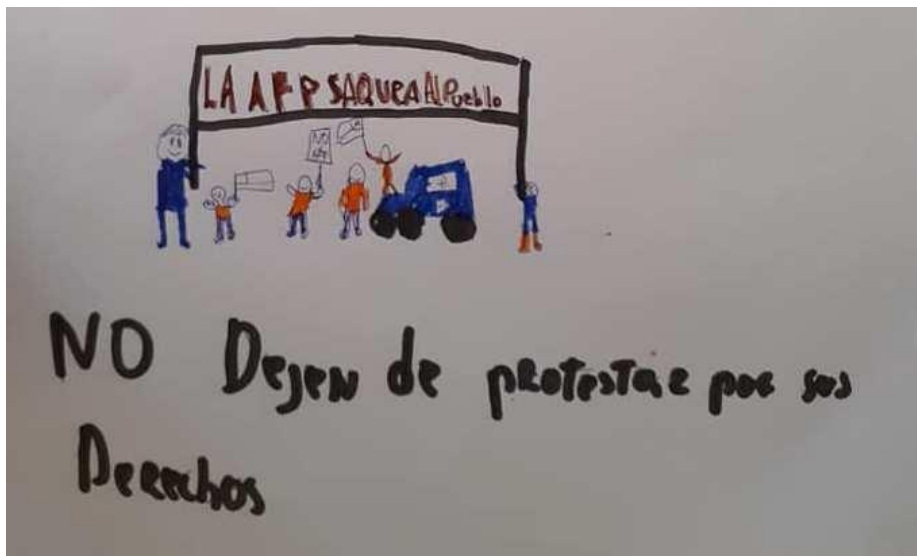 LA AFP SAQUEA Al Pueblo
NO
AFP
NO Dejen de protestar por sus
Derechos